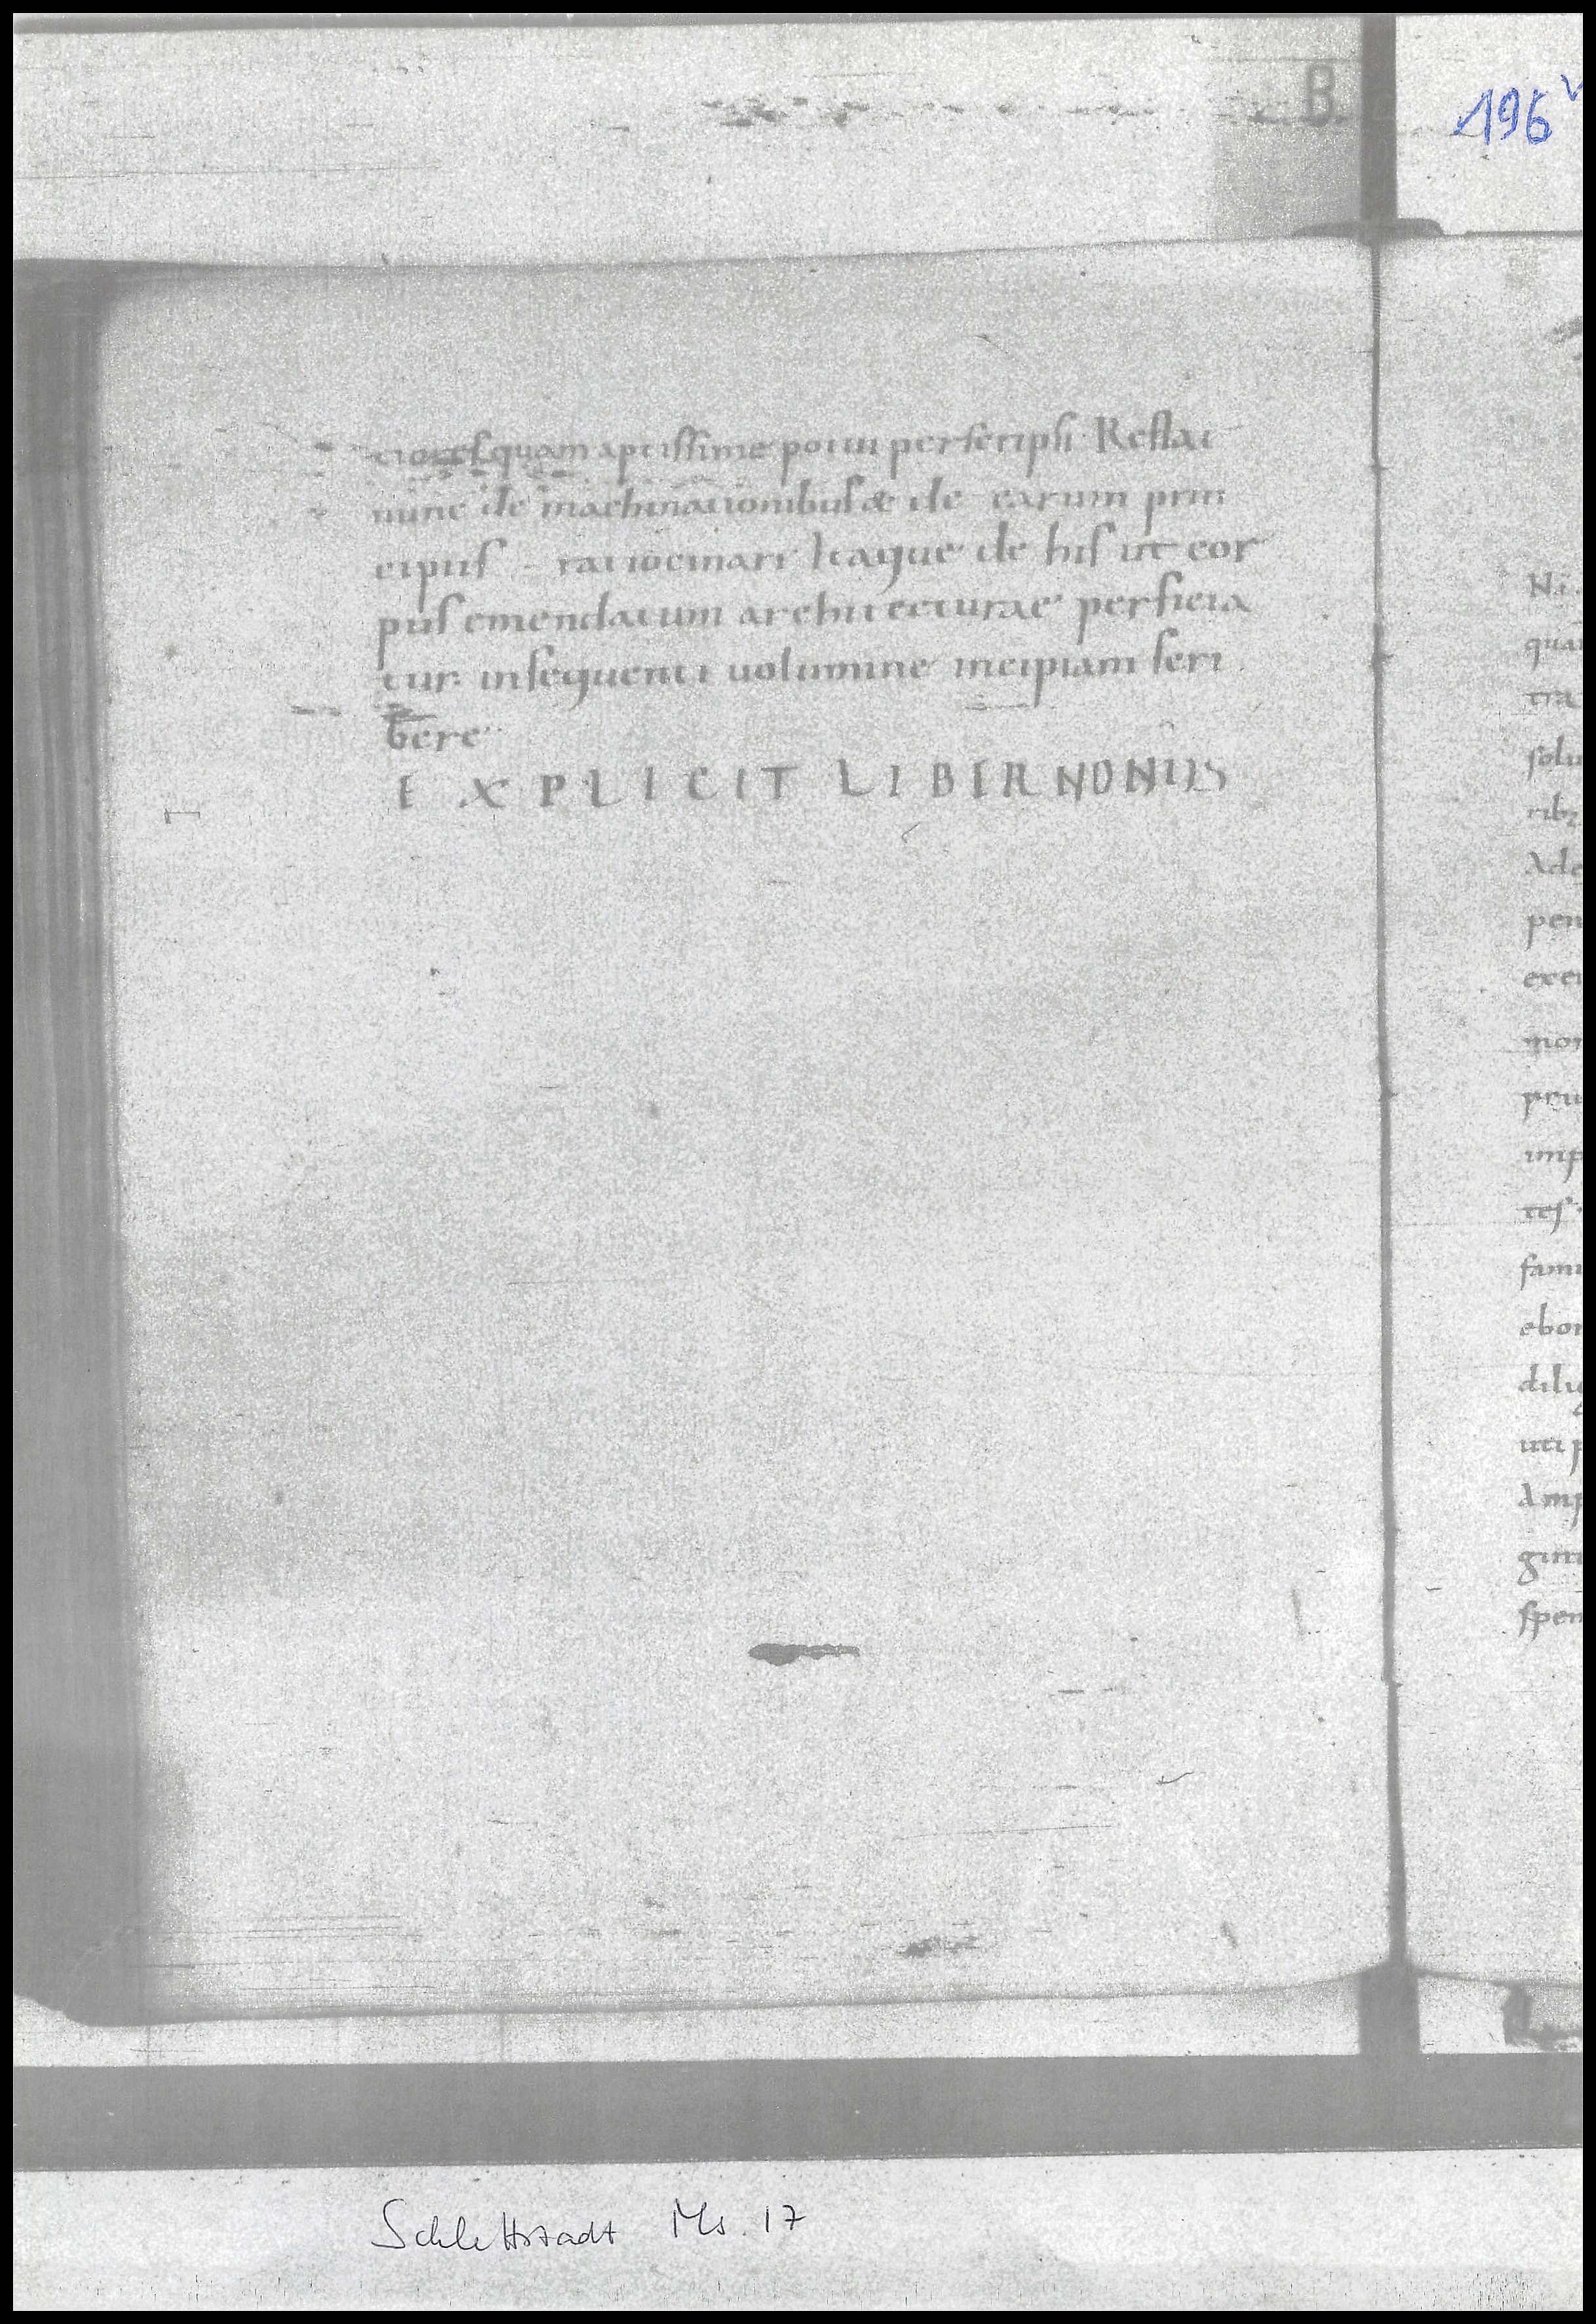 B
196v
tioresquam aptissime potui perscripsi Restat
nunc de machinationibus & de earum prin
cipiis ratiocinari Itaque de his ut cor
pus emendatum architecturae perficia
tur. insequenti uolumine incipiam scri
bere
EXPLICIT LIBER NONUS
Ni
qua
tra
solu
rib;
Ade
pen
exer
mor
peu
imp
tes
fami
ebor
dilig
uti p
Amp
gint
spem
Schlettstadt Ms. 17